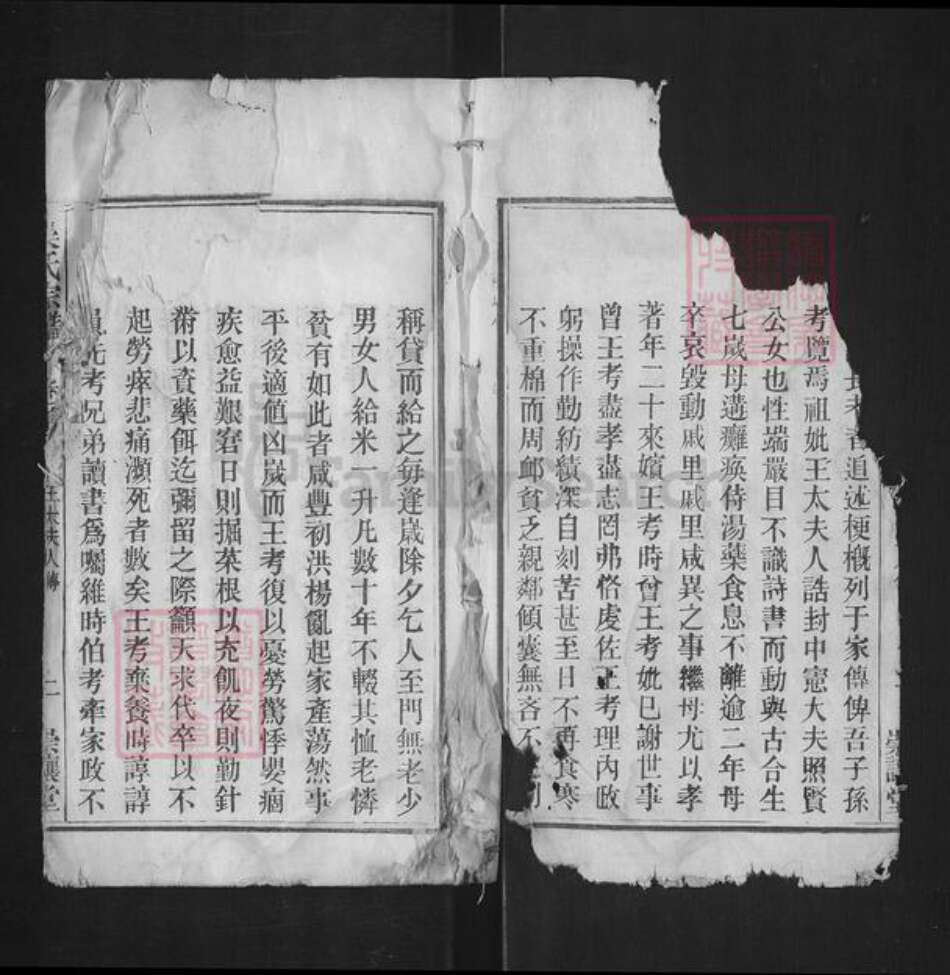 追述梗概列于家傳俾吾子孫
考覽焉祖妣王太夫人誥封中憲大夫照賢
公女也性端嚴目不識詩書而動與古合生
七歲母遘癱瘓侍湯藥食息不離逾二年母
卒哀毀動戚里戚里咸異之事繼母尤以孝
著年二十來嬪王考時曾王考妣已謝世事
曾王考盡孝盡志罔弗恪虔佐王考理內政
躬操作勤紡績深自刻苦甚至日不再食寒
不重棉而周卹貧乏親鄰傾囊無吝不
崇讓堂
稱貸而給之每逢歲除夕乞人至門無老少
男女人給米一升凡數十年不輟其恤老憐
貧有如此者咸豐初洪楊亂起家產蕩然事
平後適値凶歲而王考復以憂勞驚悸嬰痼
疾愈益艱窘日則掘菜根以充飢夜則勤針
黹以資藥餌迄彌留之際籲天求代卒以不
起勞瘁悲痛瀕死者數矣王考棄養時諄諄
以先考兄弟讀書爲囑維時伯考牽家政不
吳氏宗譜
王太夫人傳
二
崇讓堂